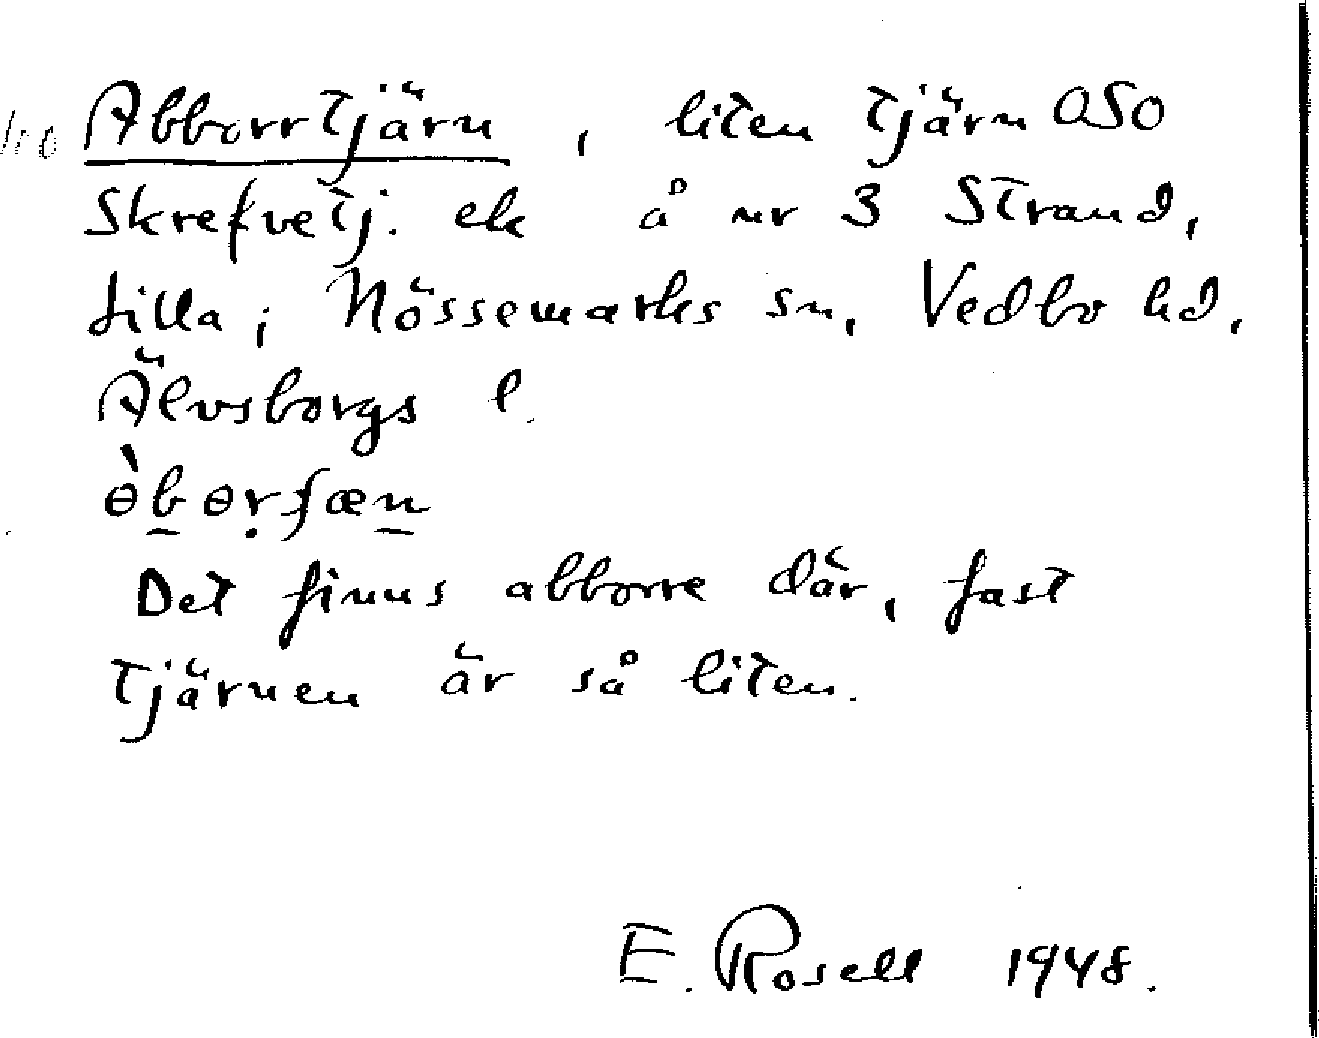 Abborrtjärn, liten tjärn OSO
Skrefvetj. ek å nr 3 Strand,
Lilla, i Nössemarks sn, Vedbo hd,
Älvsborgs l.
ɵ̀b̲ɵṛʃæn̲
Det finns abborre där, fast
tjärnen är så liten.
E. Rosell 1948.